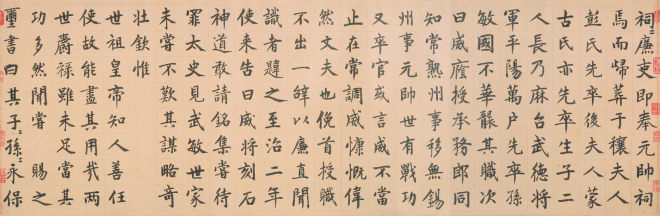 祠廉吏即奉元帥祠
焉而歸葬于穰夫人
彭氏先卒後夫人蒙
古氏亦先卒生子二
人長乃麻台武德將
軍平陽萬户先卒孫
敏國不華襲其職次
曰威癊授承務郎同
知常熟州事移無錫
州事元帥世有戰功
又卒官或言威不當
止在常調威慷慨偉
然文夫也俛首授職
不出一辭以廉直聞
識者韙之至治二年
使来告曰威将刻石
神道敢請銘集嘗待
罪太史見武敏世家
未嘗不歎其謀略奇
壮欽惟
世祖皇帝知人善任
使故能盡其用哉兩
世爵禄雖未足當其
功多然聞嘗賜之
璽書曰其子孫永保